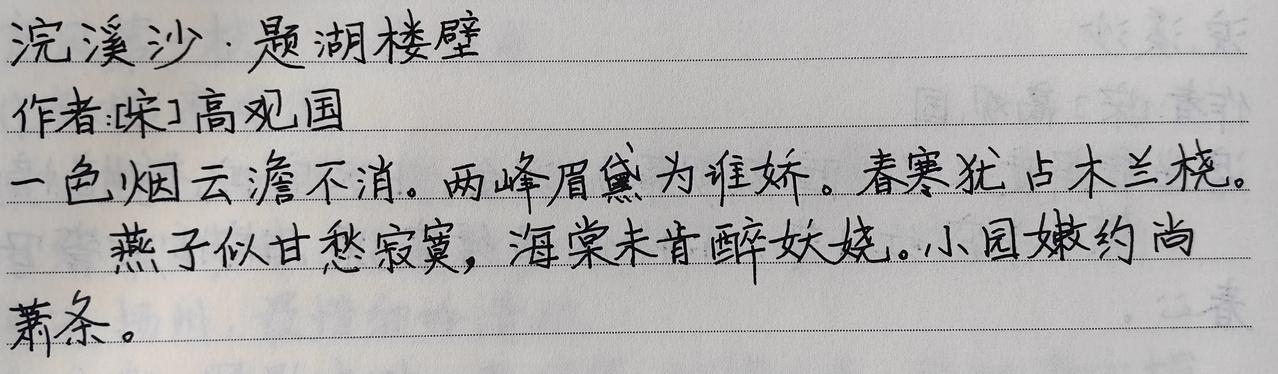 浣溪沙·题湖楼壁
作者:[宋]高观国
一色烟云澹不消。两峰眉黛为谁娇。春寒犹占木兰桡。
燕子似甘愁寂寞，海棠未肯醉妖娆。小园嫩约尚
萧条。